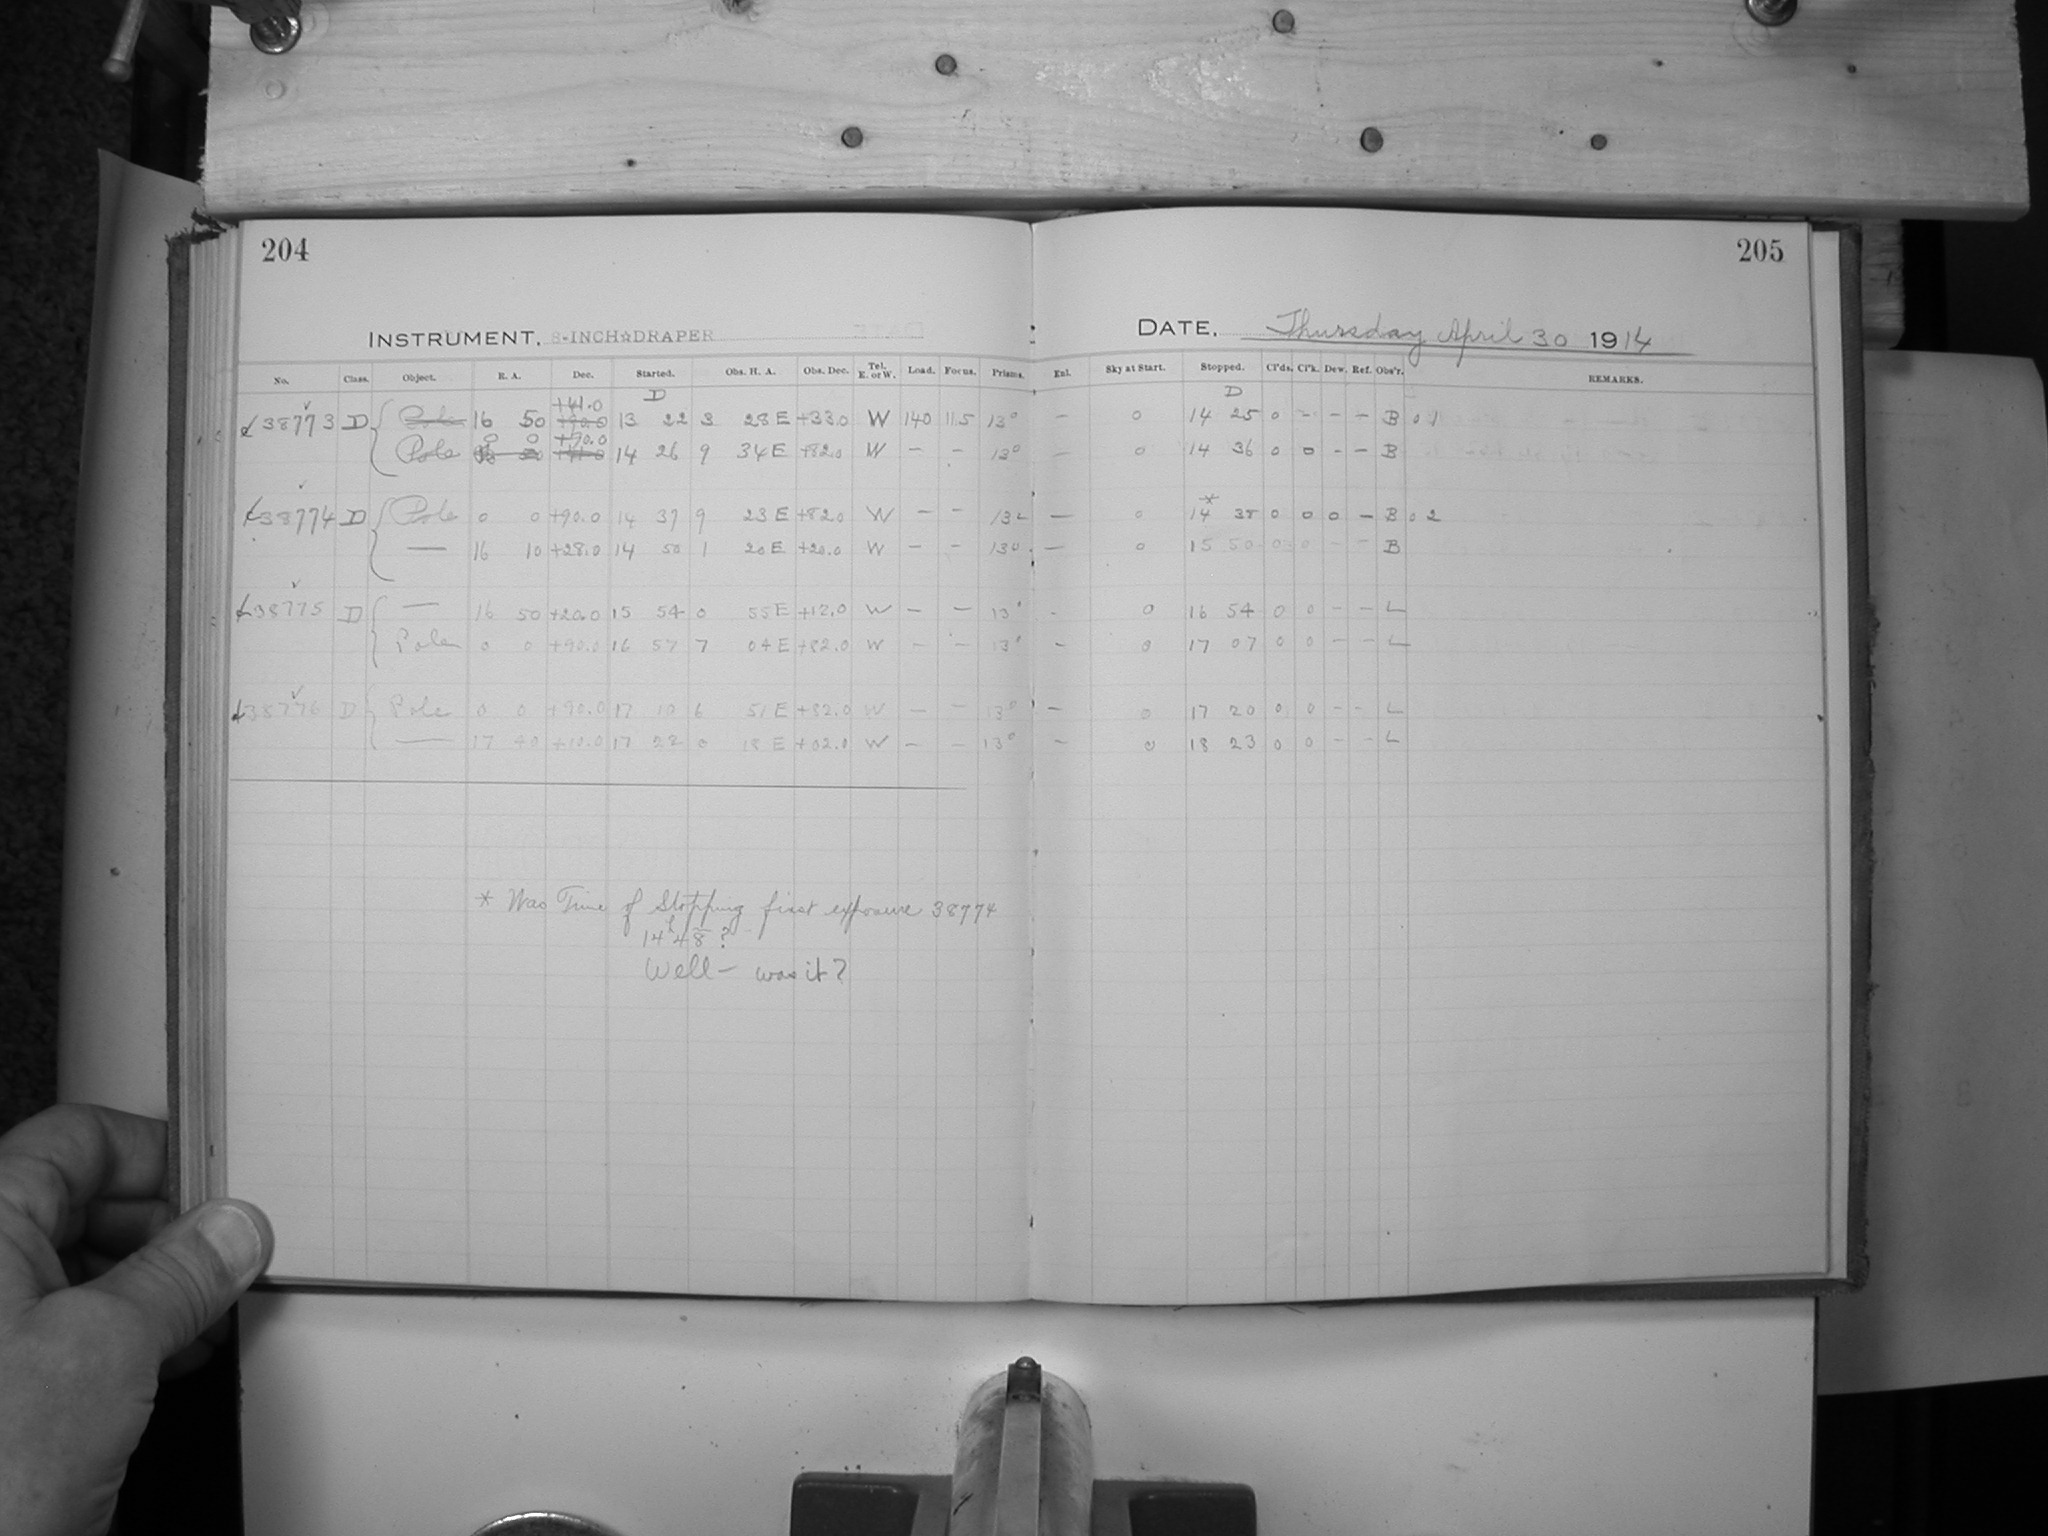 204
205
INSTRUMENT, 8-INCH☆DRAPER
DATE, Thursday April 30 1914
No. Class. Object. R. A. Dec. Started. Obs. H. A. Obs. Dec. Tel. E. or W. Load. Focus. Prisms. Enl. Sky at Start. Stopped. Cl'ds. Cl'k. Dew. Ref. Obs'r. REMARKS.
+41.0 D D
38773 D Pole 16 50 +90.0 13 22 3 28 E +33.0 W 140 11.5 13° — 0 14 25 0 - - - B 0 1
0 0 +90.0
Pole 14 26 9 34 E +82.0 W — - 13° — 0 14 36 0 0 - - B
38774 D Pole 0 0 +90.0 14 37 9 23 E +82.0 W — - 13° — 0 * 14 38 0 0 0 — B 0 2
— 16 10 +28.0 14 50 1 20 E +20.0 W — - 13° — 0 15 50 0 0 - - B
38775 D — 16 50 +20.0 15 54 0 55 E +12.0 W — - 13° - 0 16 54 0 0 - - L
Pole 0 0 +90.0 16 57 7 04 E +82.0 W — - 13° - 0 17 07 0 0 - - L
38776 D Pole 0 0 +90.0 17 10 6 51 E +82.0 W — - 13° - 0 17 20 0 0 - - L
— 17 40 +10.0 17 22 0 18 E +02.0 W — - 13° - 0 18 23 0 0 - - L
* Was Time of Stopping first exposure 38774
14h 48 ?
Well — was it?